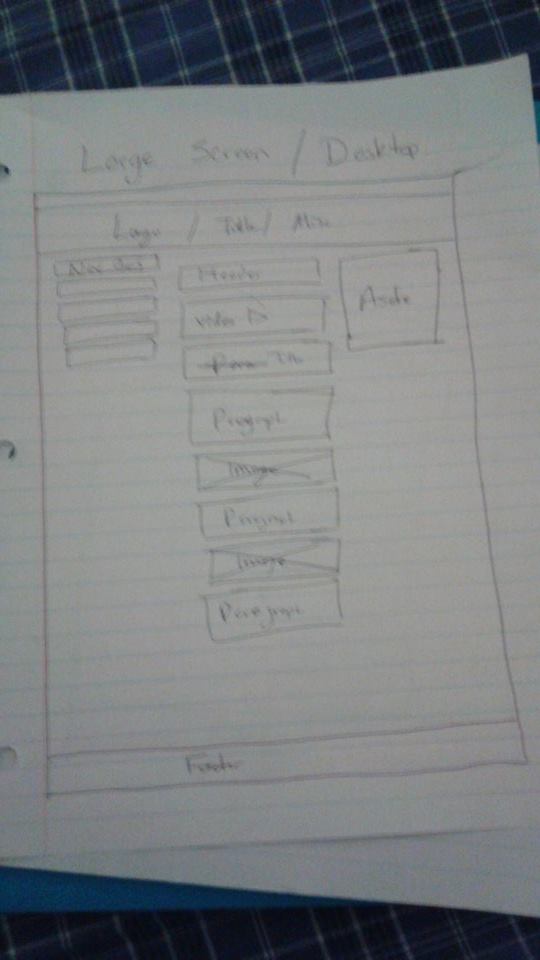 Large Screen / Desktop
Logo / Title / Misc
Nav Bar
Header
Video
Title
Paragraph
Image
Paragraph
Image
Paragraph
Aside
Footer